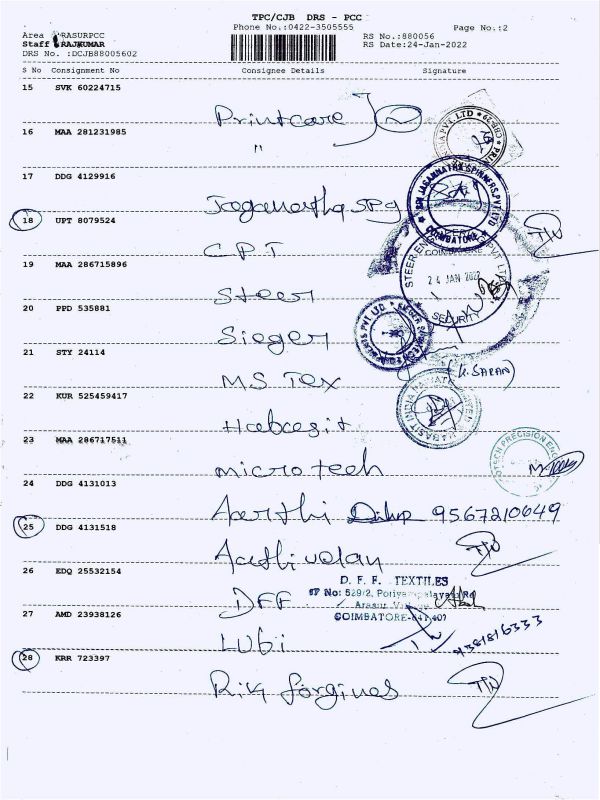 TPC/CJB DRS - PCC
Phone No.:0422-3505555 Page No.:2
Area RASURPCC RS No.:880056
Staff RAJKUMAR RS Date:24-Jan-2022
DRS No. :DCJB88005602
S No Consignment No Consignee Details Signature
15 SVK 60224715
Printcare
16 MAA 281231985
"
17 DDG 4129916
Jaganantha SPG
SRI JAGANNATHA SPINNERS PVT LTD
COIMBATORE
18 UPT 8079524
CPT
19 MAA 286715896
Steer
24 JAN 2022
SECURITY
20 PPD 535881
Sieger
21 STY 24114
MS Tex (K. SARAN)
22 KUR 525459417
Habasit
23 MAA 286717511
microtech
24 DDG 4131013
Aarthi 9567210649
25 DDG 4131518
26 EDQ 25532154
DFF
D. F. F. TEXTILES
SF No: 529/2,
COIMBATORE-641 407
27 AMD 23938126
Lubi
28 KRR 723397